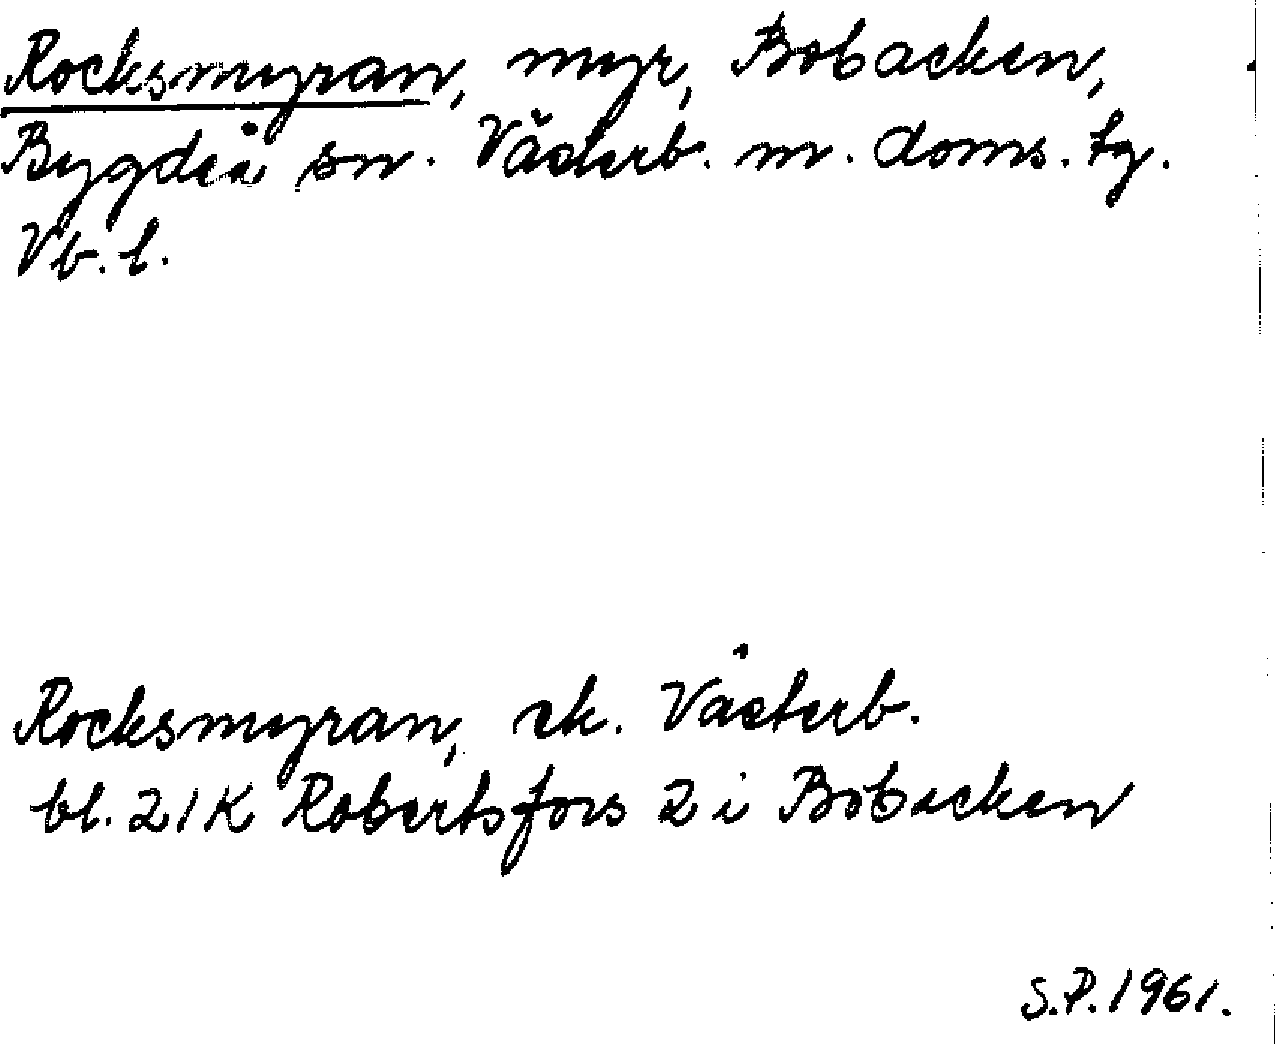 Rocksmyran, myr, Bobacken,
Bygdeå sn. Västerb. m. doms. tg.
Vb. l.
Rocksmyran, ek. Västerb.
bl. 21K Robertsfors 2 i Bobacken
S.P. 1961.